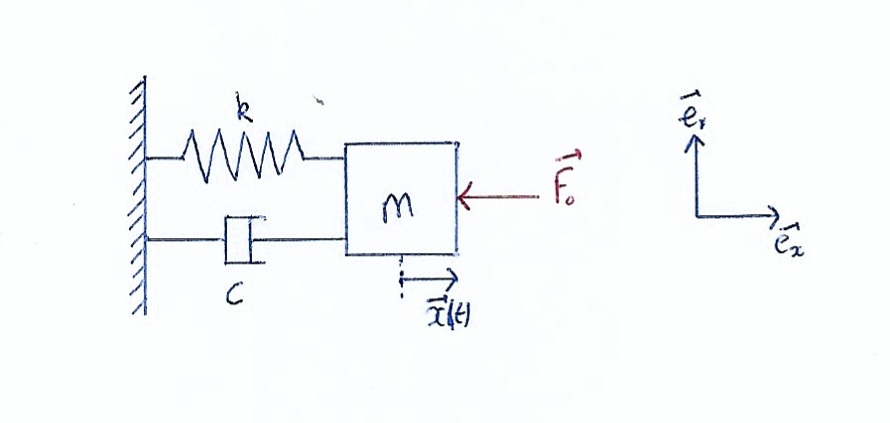 k
m
F₀
C
x(t)
eᵧ
eₓ